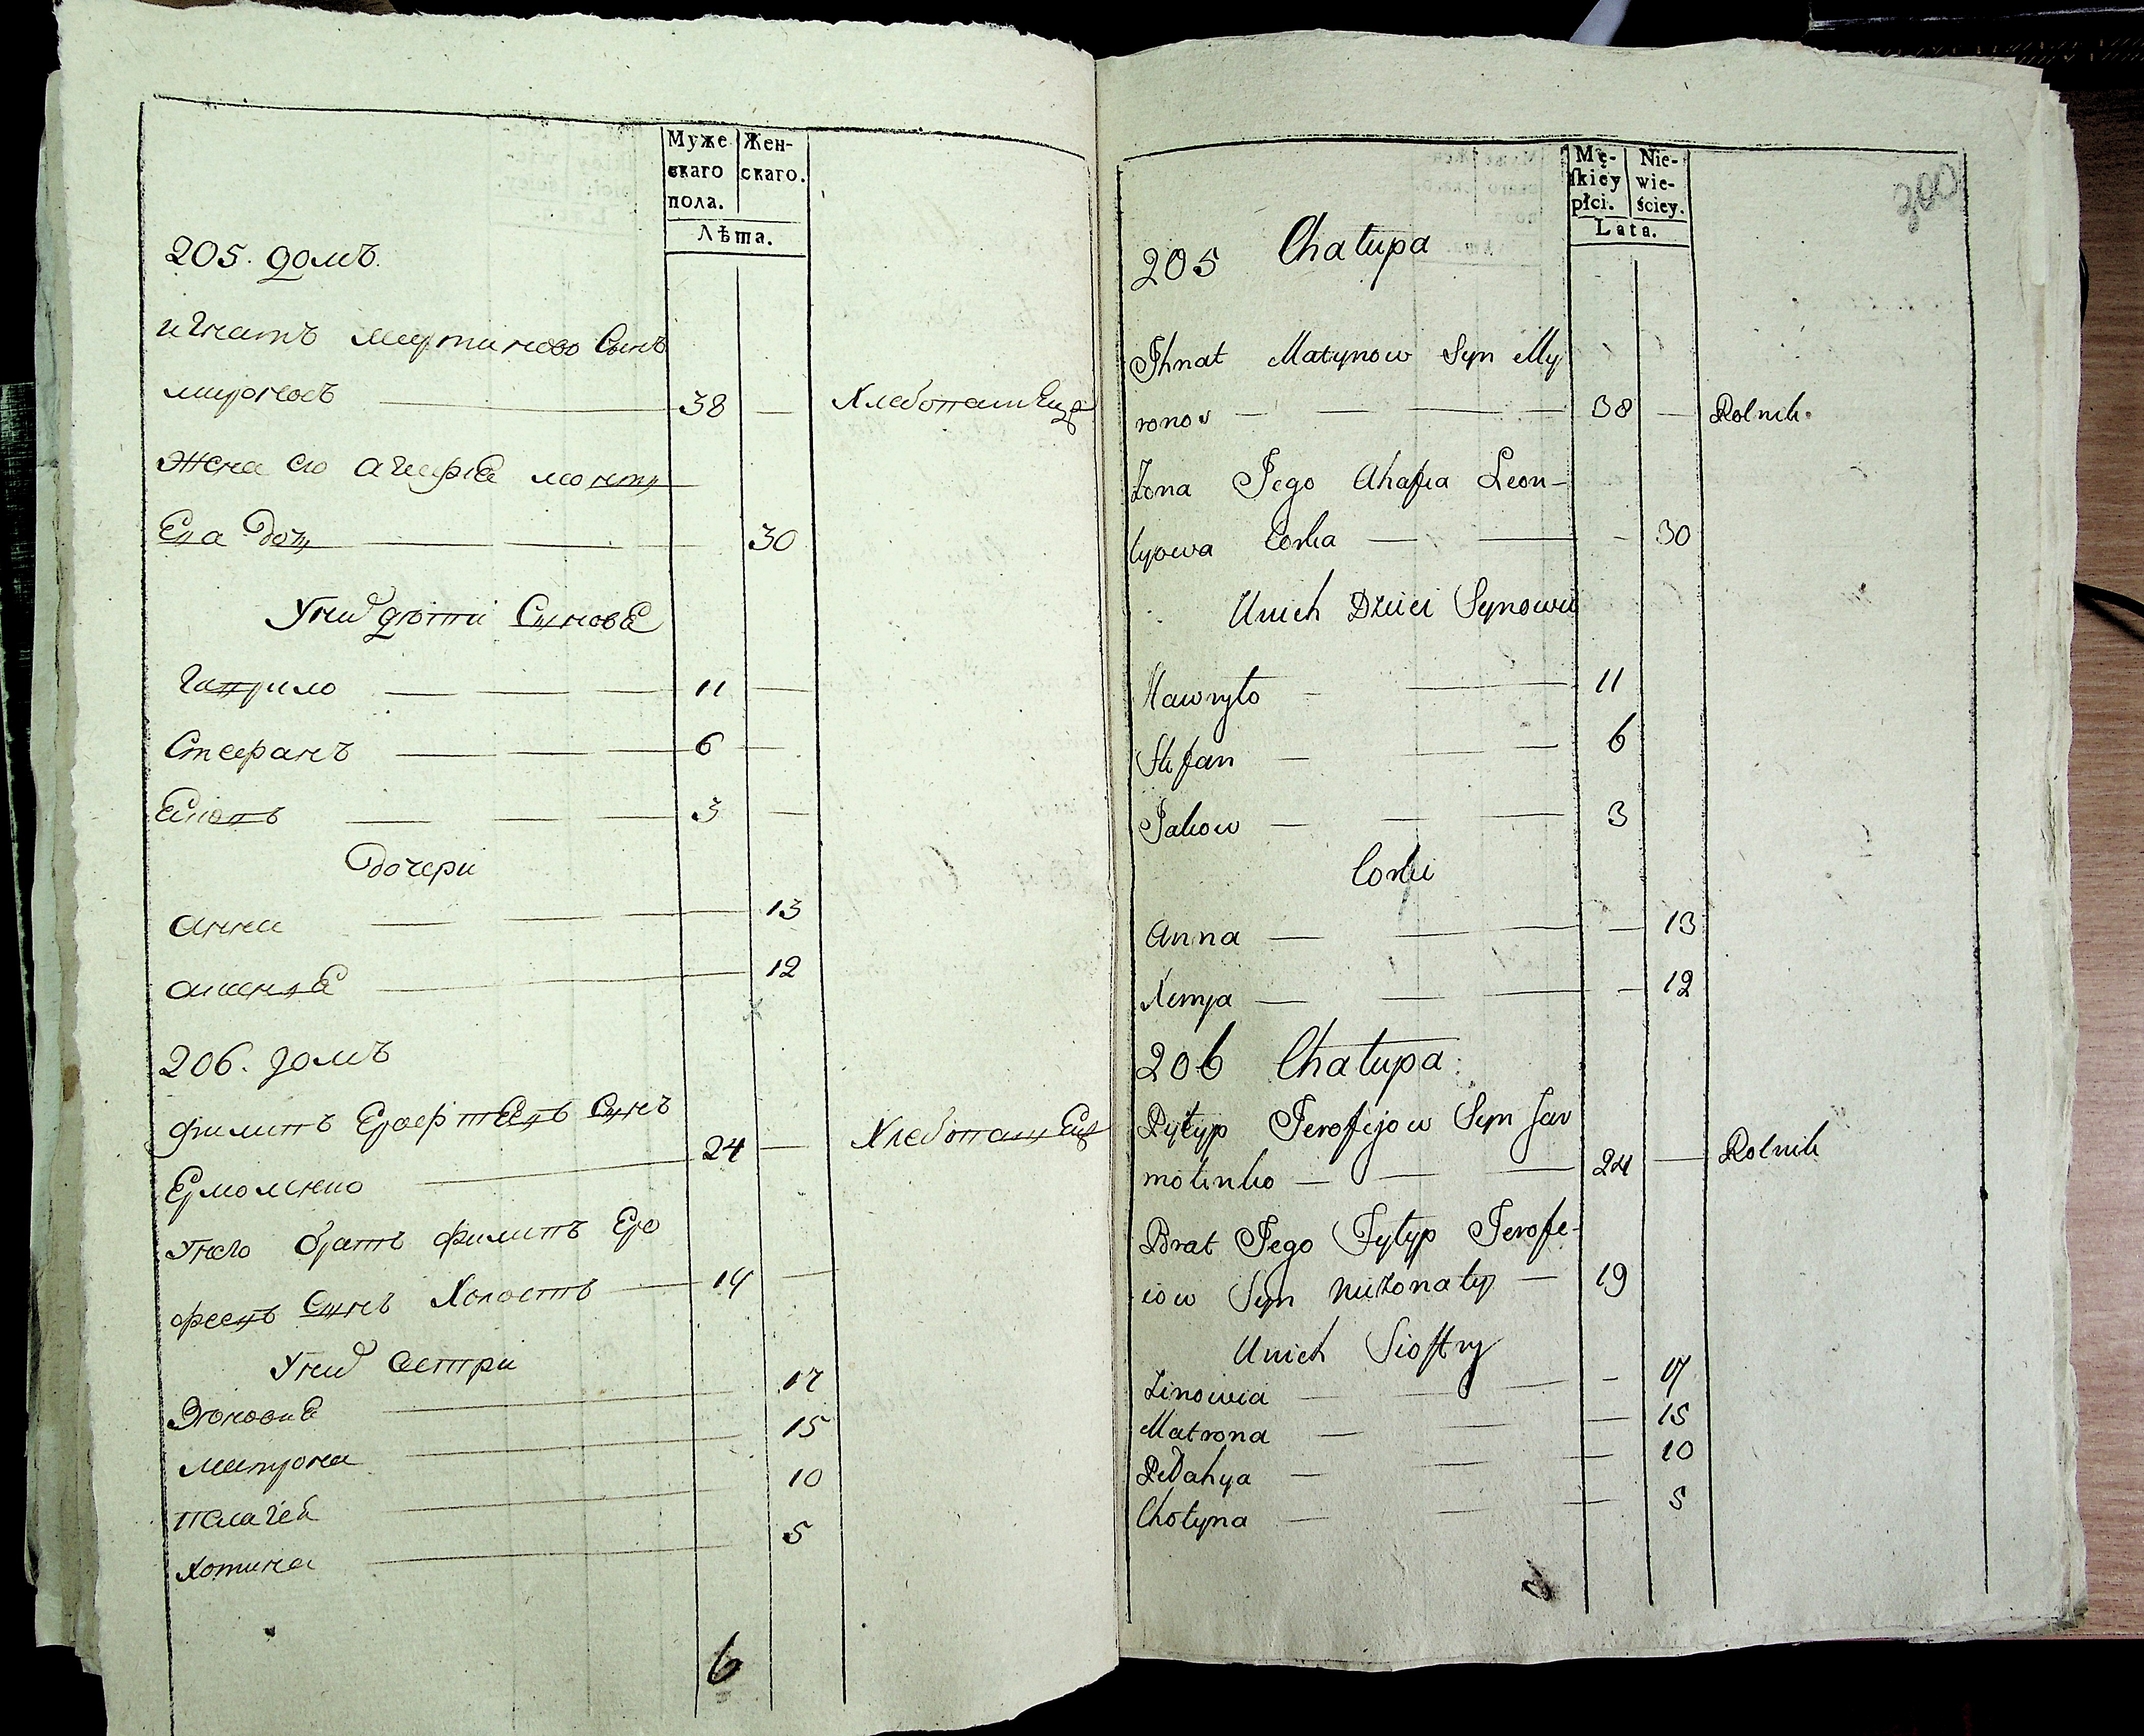 Муже
скаго
пола.
Жен-
скаго.
Лѣта.
205. домъ.
игнатъ мартиново Сынъ
миронос 38 — Хлебопашец
Жена его агафіе
дочь — 30
Уних дѣти Синове
Гаврило — 11 —
Стефанъ — 6 —
Еков — 3 —
дочери
анна — 13
аксение — 12
206. домъ
филипъ Ерофѣевъ Сынъ
Ермоленко — 24 — Хлебопашец
Унего братъ филипъ Еро
феевъ Сынъ Холостъ — 19 —
Уних сестри
Зѣновие — 17
матрона — 15
пелагея — 10
хотина — 5
6
Mę-
ſkiey
płci.
Nie-
wie-
ściey.
Lata.
200
205 Chałupa
Jhnat Matynow Syn My
ronos — 38 — Rolnik.
Żona Jego Ahafia Leon-
typowa Corka — 30
Unich Dzieci Synowie
Hawryło — 11
Stefan — 6
Jakow — 3
Corki
Anna — 13
Xenya — 12
206 Chałupa
Pyłyp Jerofijow Syn Jar
mołenko — 24 — Rolnik
Brat Jego Fyłyp Jerofe-
iow Syn nieżonaty — 19
Unich Sioſtry
Zinowia — 17
Matrona — 15
Pełahya — 10
Chotyna — 5